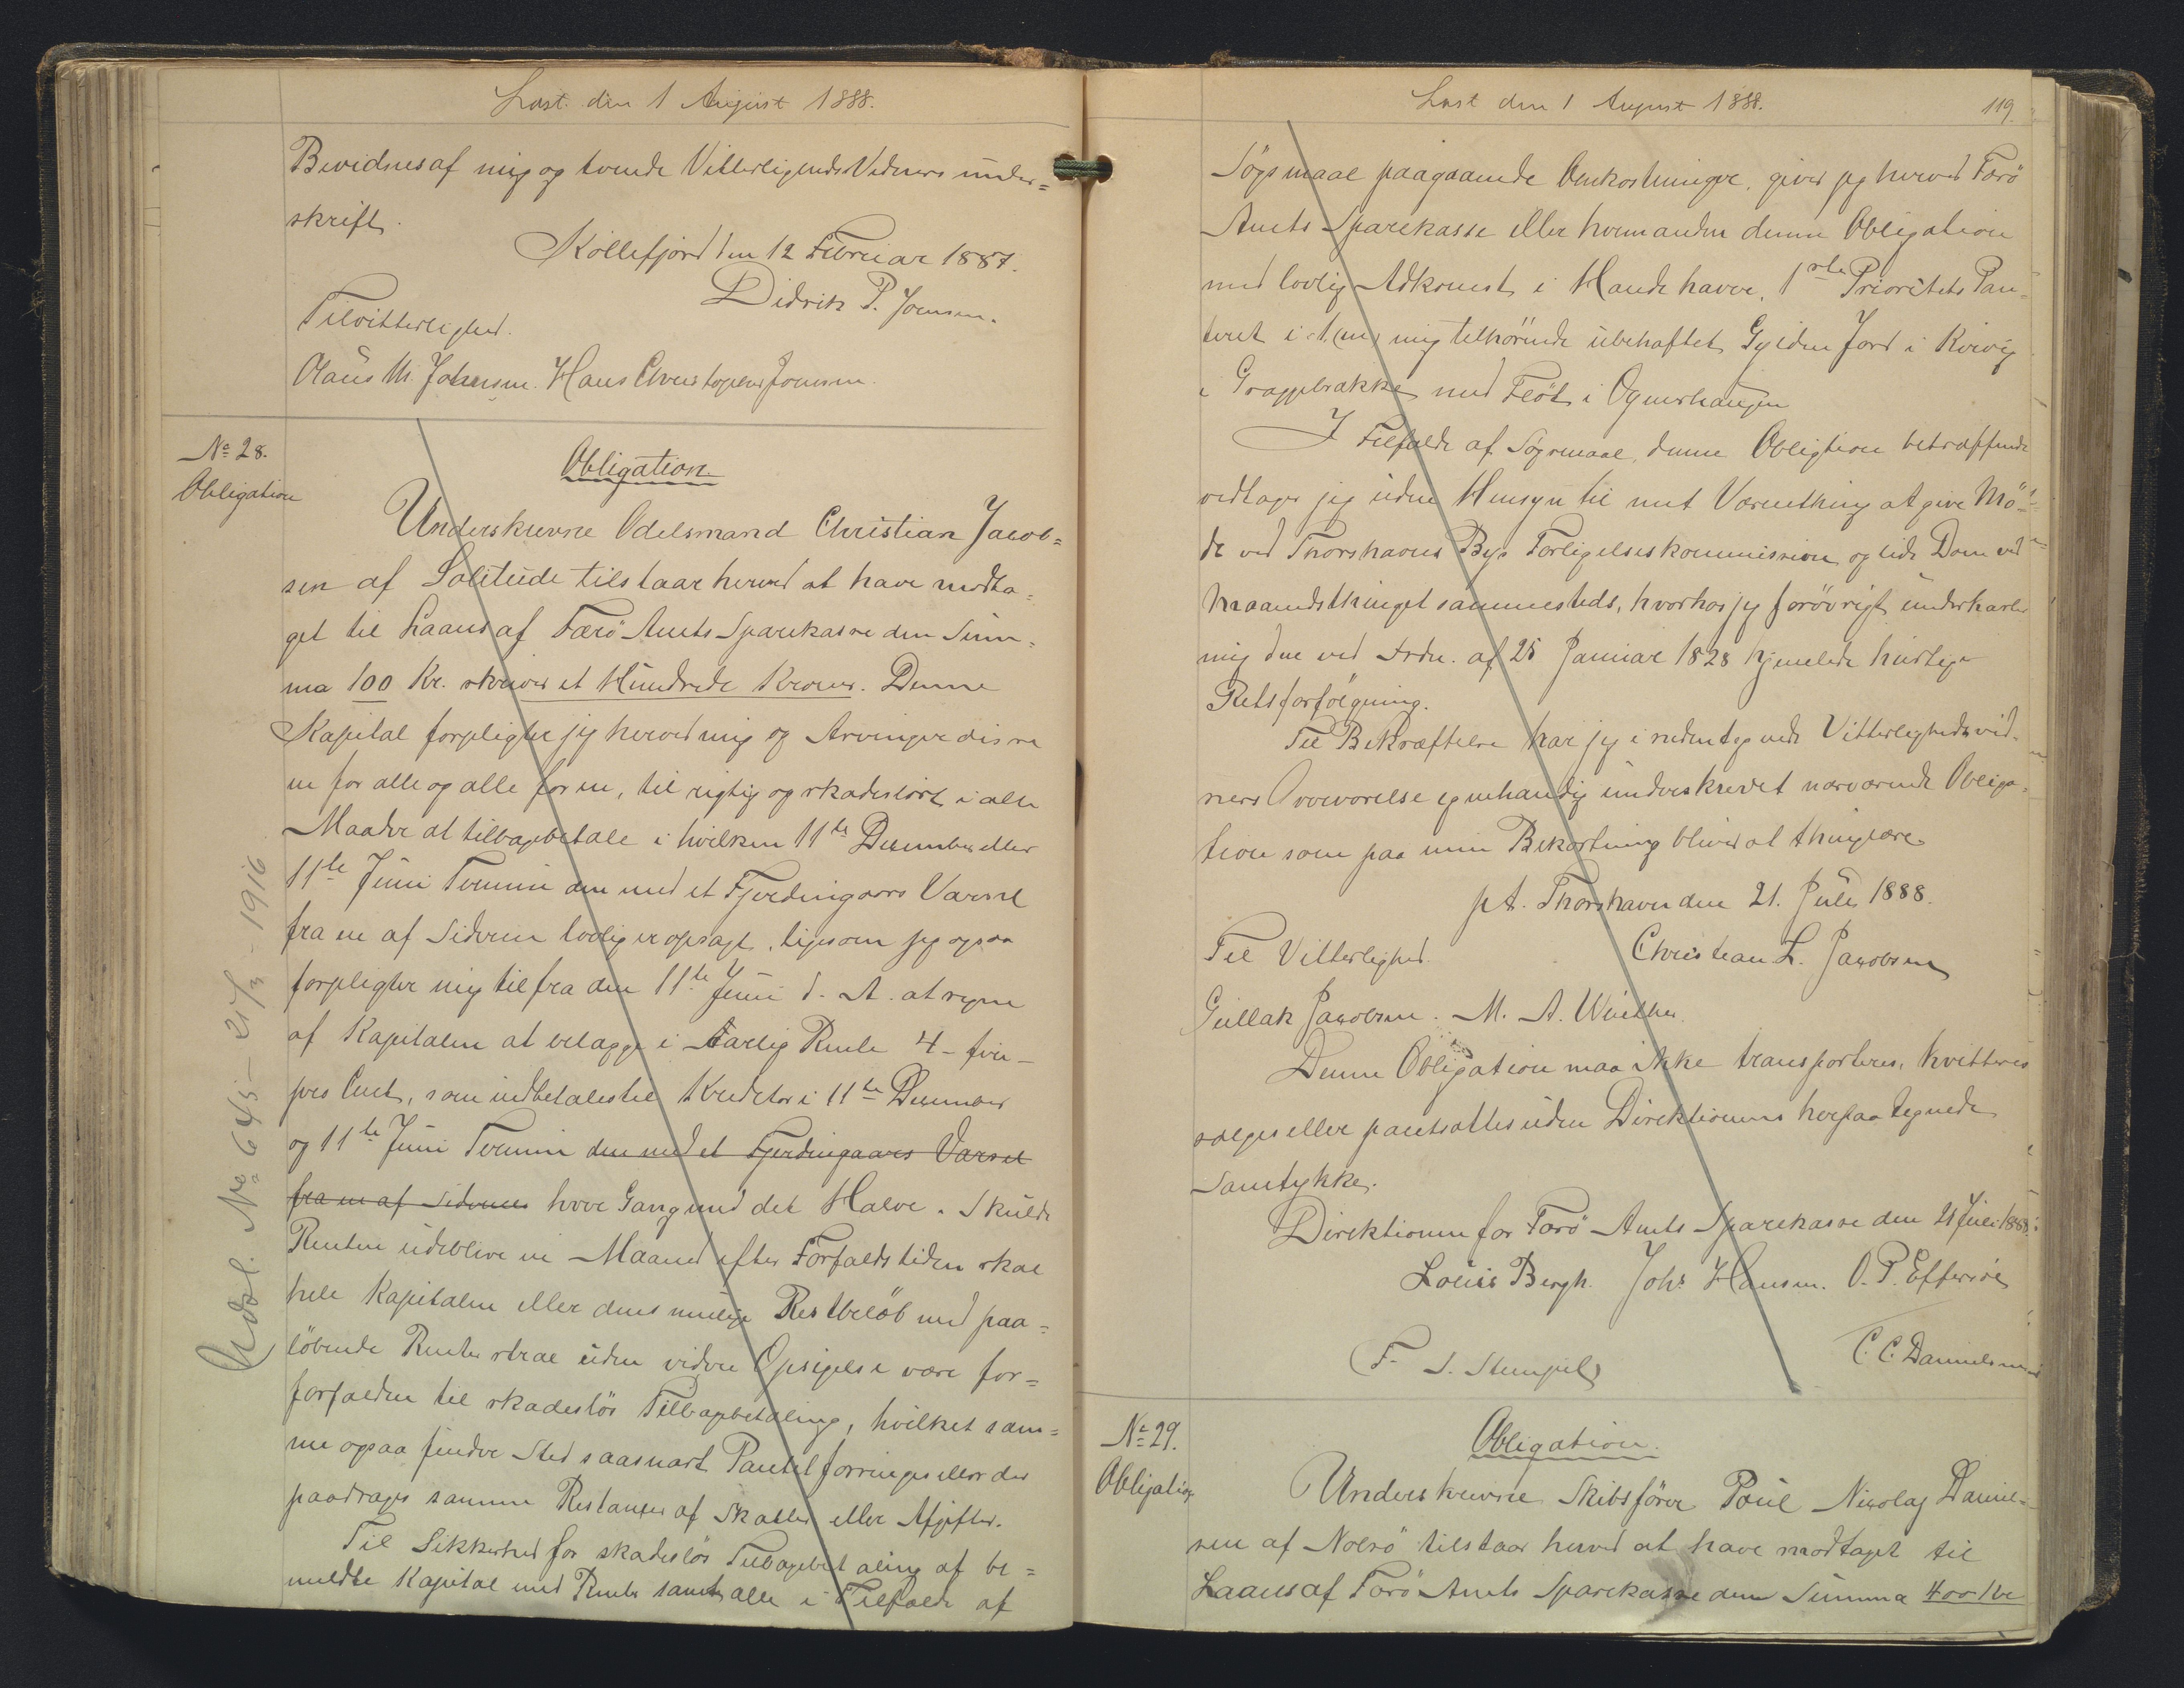 Læst den 1 August 1888.
Bevidnes af mig og tvende Vitterligheds Vidners under=
skrift.
Kollefjord den 12 Februar 1887.
Didrik P. Joensen.
Tilvitterlighed.
Claus M. Johansen. Hans Christopher Joensen.
No 28.
Obligation
Obligation
Underskrevne Odelsmand Christian Jacob=
sen af Solitude tilstaar herved at have modta=
get til Laans af Færö Amts Sparekasse den Sum=
ma 100 Kr. skriver et Hundrede Kroner. Denne
Kapital forpligter jeg herved mig og Arvinger disse
en for alle og alle for en, til rigtig og skadeslöst i alle
Maader at tilbagebetale i hvilken 11te December eller
11te Juni Termin den med et Fjerdingaars Varsel
fra en af Siderne lovlig er opsagt, ligesom jeg ogsaa
forpligter mig til fra den 11te Juni d. A. at regne
af Kapitalen at erlægge i Aarlig Rente 4 - fire -
pro Cent, som indbetales til Kreditor i 11te December
og 11te Juni Termin den med et Fjerdingaars Varsel
fra en af Siderne hver Gang med det Halve. Skulde
Renten udeblive en Maaned efter Forfaldstiden skal
hele Kapitalen eller dens mulige Restbelöb med paa=
löbende Renter strax uden videre Opsigelse være for=
forfalden til skadeslös Tilbagebetaling, hvilket sam=
me ogsaa finder Sted saasnart Pantet forringes eller der
paadrages samme Restanser af Skatter eller Afgifter.
Til Sikkerhed for skadeslös Tilbagebetaling af be=
meldte Kapital med Renter samt alle i Tilfælde af
Udsl. No 645 - 21/3 - 1916
Læst den 1 August 1888.
119.
Sögsmaal paagaaende Omkostninger, giver jeg herved Færö
Amts Sparekasse eller hvemanden denne Obligation
med lovlig Adkomst i Hænde haver, 1ste Prioritets Pan=
teret i 1 (en) mig tilhörende ubehæftet Gylden Jord i Kvivig
i med Flöt i
I Tilfælde af Sögsmaal, denne Obligtion betræffende
vedtager jeg uden Hensyn til mit Værnething at give Mö=
de ved Thorshavns Bys Forligelseskommission og lide Dom ved
Maanedsthinget sammesteds, hvorhos jeg forövrigt underkaster
mig den ved Frdn. af 25 Januar 1828 hjemlede hurtige
Retsforfölgning.
Til Bekræftelse har jeg i nedentegnede Vitterlighedsvid=
ners Overværelse egenhændig underskrevet nærværende Obliga=
tion som paa min Bekostning bliver at thinglæse
pt. Thorshavn den 21. Juli 1888.
Til Vitterlighed.
Christian L. Jacobsen
Gullak Jacobsen. M. A. Winther.
Denne Obligation maa ikke transporteres, kvitteres
sælges eller pantsættes uden Direktionens herpaa tegnede
Samtykke.
Direktionen for Færö Amts Sparekasse den 21 Juli 1888.
Louis Bergh. Johs Hansen. O. P. Effersöe
F. S. Stempel
C. C. Danielsen
No 29.
Obligation
Obligation.
Underskrevne Skibsförer Poul Nicolaj Daniel=
sen af Nolsö tilstaar herved at have modtaget til
Laans af Færö Amts Sparekasse den Summa 400 Kr